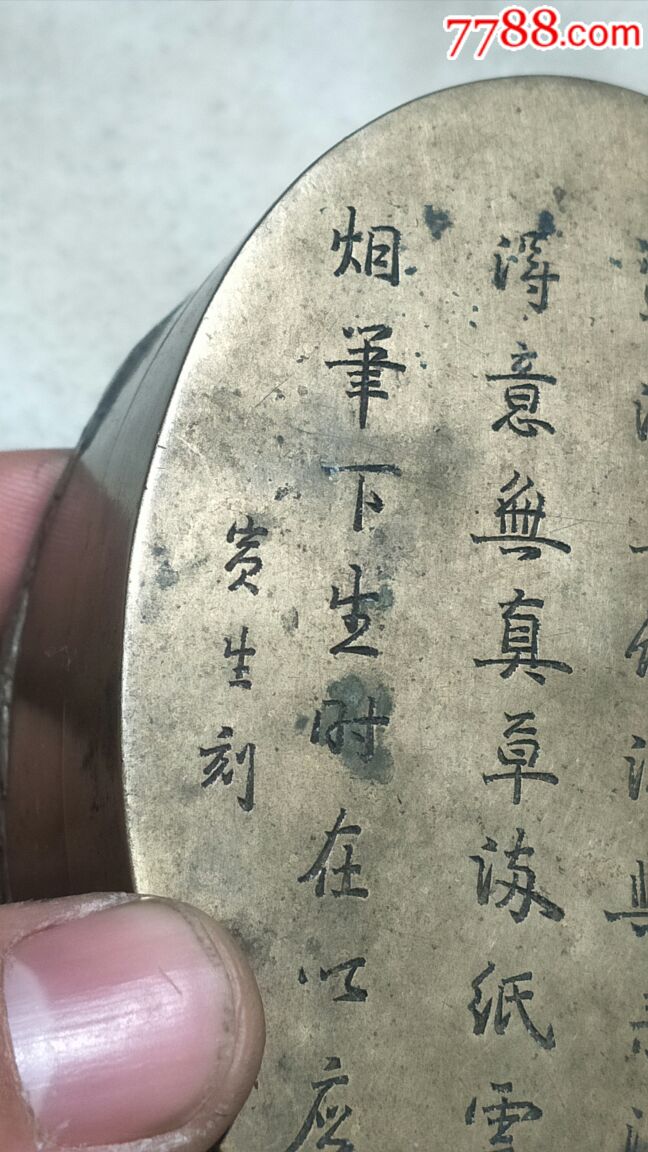 7788.com
得意無真草满紙雲
烟筆下生时在以应
寅生刻